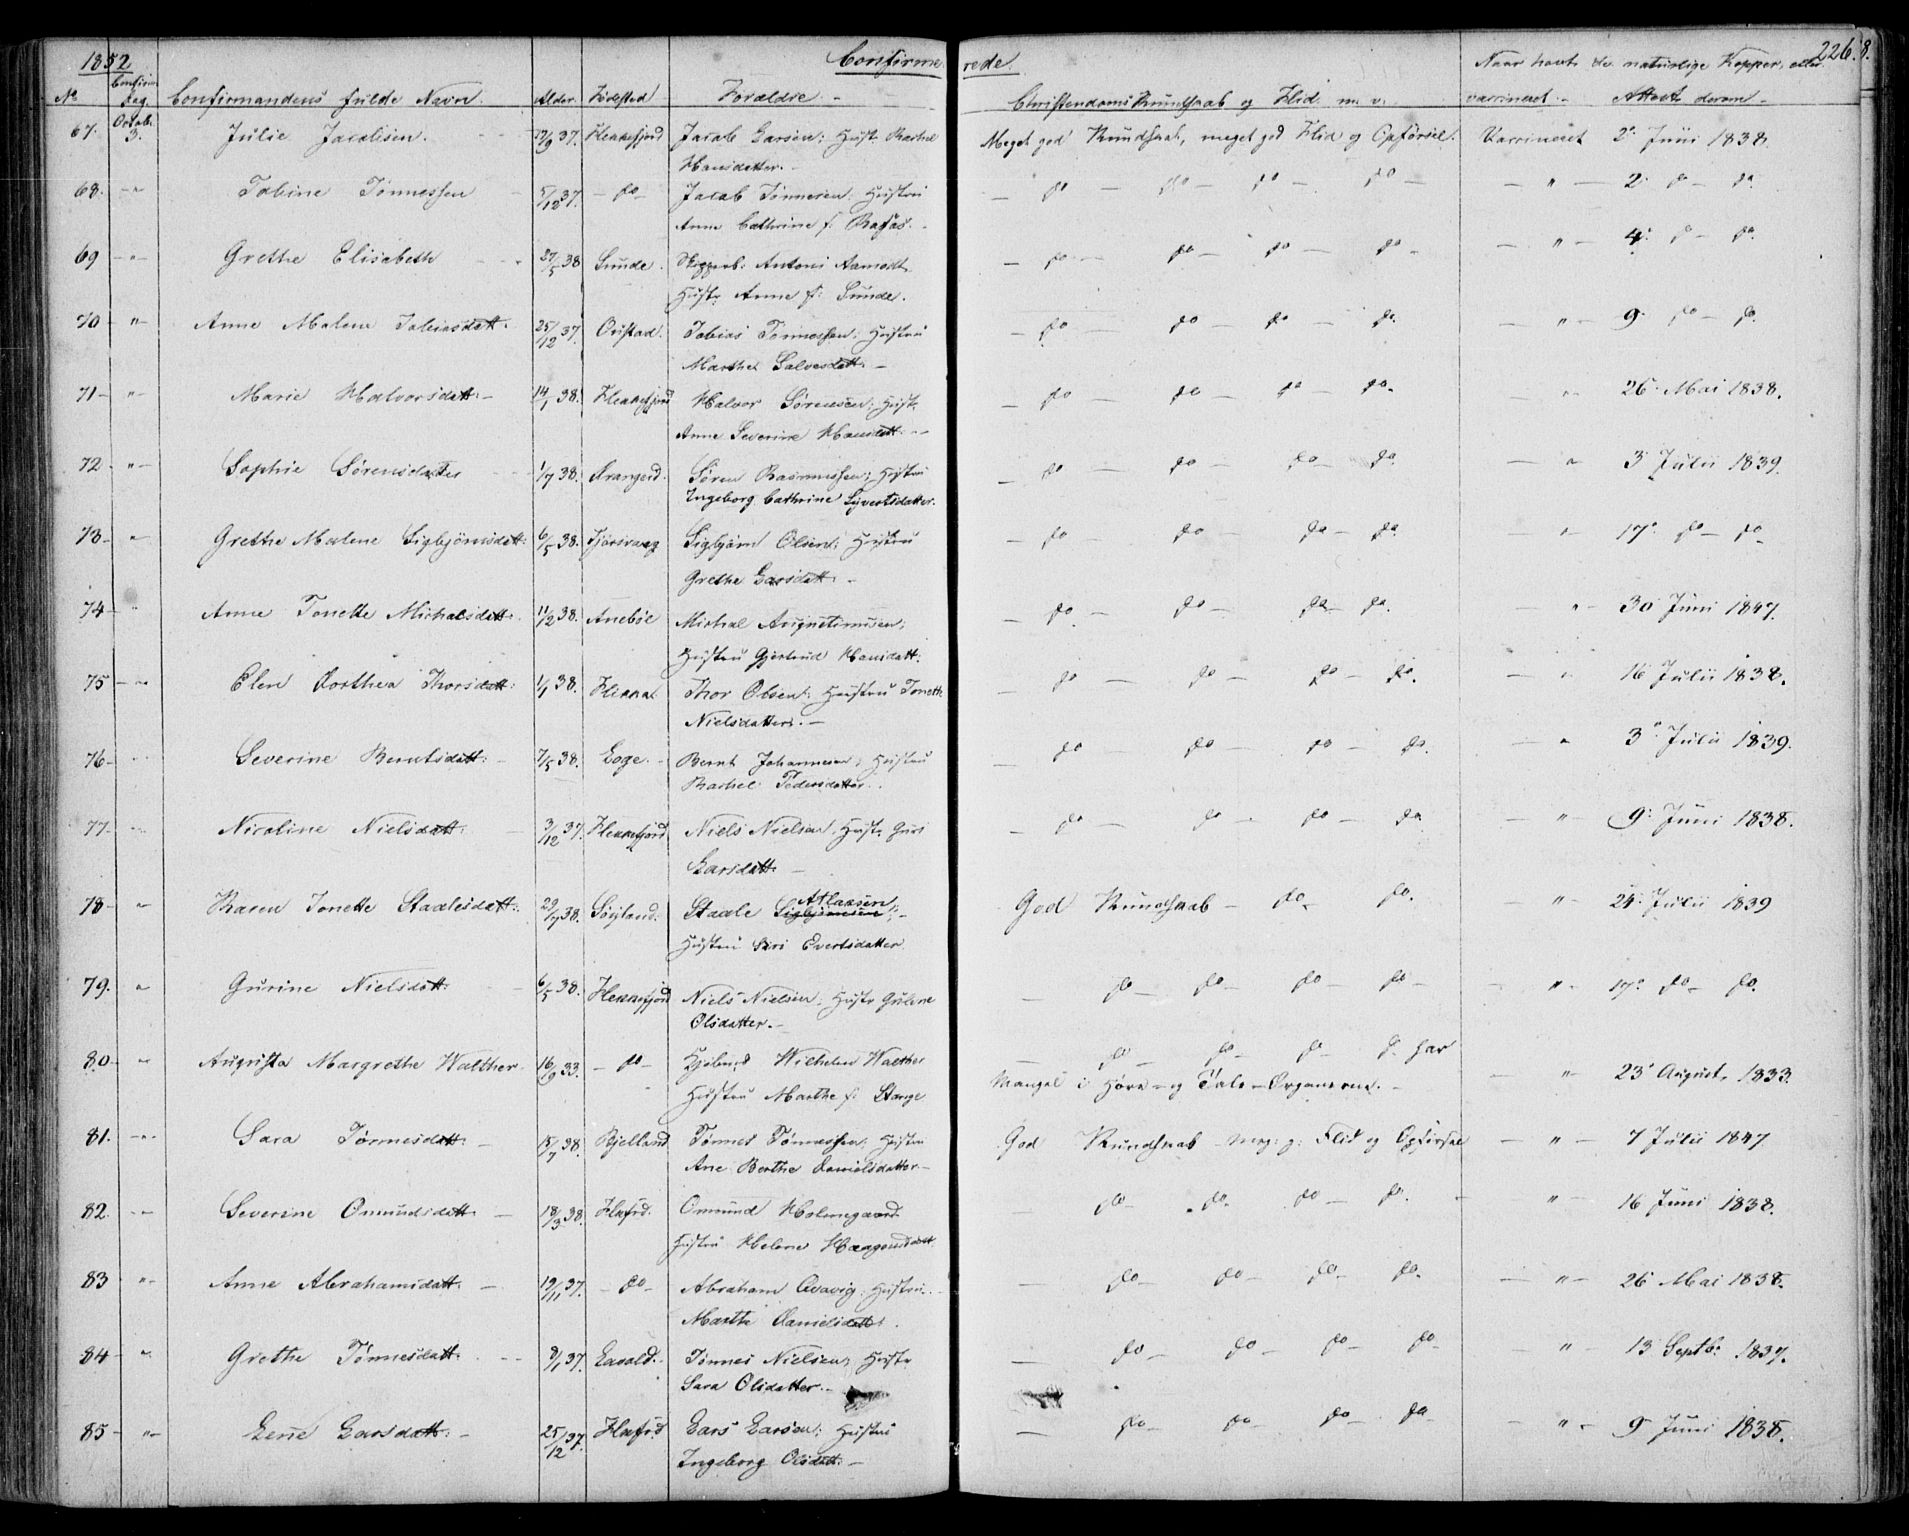 1852 Confirmerede. 226. 8.
No Confirm. Dag. Confirmandens fulde Navn. Alder. Fødested Forældre - Christendoms Kundskab og Flid m. v. Naar havt de naturlige Kopper, eller vaccineret - Attest derom -
67. Octob. 3. Julie Jacobsen. 37. Flekkefjord Jacob Larsen; Hustr. Rachel Meget god Kundskab, meget god Flid og Opførsel. Vaccineret 2. Juni 1838.
Hansdatter. -
68. -"- Tobine Tønnessen 5/12 37. - do - Jacob Tønnesen; Hustru - do - do - do - do - - " - 2. do - do.
Anne Cathrine f.
69 -"- Grethe Elisabeth 27/5 38 Sunde. Antoni Aamodt, - do - do - do - do - - " - 4. do - do.
Hustr. Anne f. Sunde.
70 -"- Anne Malene Tobiasdatt. 25/12 37. Tobias Tønnessen; Hustru - do do - do - do. - " - 9. do - do.
Marthe Salvesdatt. -
71 - -"- Marie Halvorsdatt. - 14/1 38. Flekkefjord Halvor Sørensen; Hustr. - do - do - do - do. - " - 26. Mai 1838.
Anne Severine Hansdatt. -
72 -"- Sophie Sørensdatter 1/7 38. Søren Rasmussen; Hustru - do - do - do - do. - " 3 Julii 1839.
Ingeborg Cathrine Syvertsdatter.
73 - " Grethe Malene Sigbjørnsdatt. 6/5 38. Fjorsvaag Sigbjørn Olsen; Hustru - do - do do - do. - " - 17. do - do -
Grethe Larsdatt. -
74 - " Anne Tonette Michalsdatt. 11/2 38. Anebøe Michal Augustinusen; - do - do - do - do. - " - 30 Juni 1847.
Hustru Gjertrud Hansdatt.
75 - -"- Elen Dorthea Thorsdatt. 1/1 38. Thor Olsen; Hustru Tonette - do - do - do - do. - " 16 Julii 1838.
Nielsdatter. -
76 - " Severine Berntsdatt. 7/5 38. Loge. - Bernt Johannesen; Hustru - do - do - do - do. - " 3 Julii 1839.
Rachel Pedersdatter.
77. " Nicoline Nielsdatt. 3/12 37. Flekkefjord. Niels Nielsen, Hustr. Guri - do - do - do - do. - " - 9. Juni 1838.
Larsdatt. -
78 - " Karen Tonette Staalesdatt. 29/7 38. Søyland. Staale Sigbjørnsen Atlaksen; God Kundskab - do - do. - " - 24. Julii 1839
Hustru Siri Evertsdatter
79. " Gurine Nielsdatt. 6/5 38. Flekkefjord Niels Nielsen; Hustr. Gulene - do - do - do - do - - " - 17. do - do.
Olsdatter. -
80 - " Augusta Margrethe Walther. 16/9 33. - do - Wilhelm Walther - do - do - do - do. har
Hustru Marthe f. Stange Mangel i Høre- og Tale-Organerne. - - " - 23. August, 1833.
81. -"- Sara Tønnesdatt. - 15/7 38. Bjelland Tønnes Tønnessen; Hustru God Kundskab - meg. g. Flid og Opførsel - " - 7 Julii 1847.
Ane Berthe Danielsdatter -
82. -"- Severine Omundsdatt. - 18/3 38. Omund Holmegaard. - do - do - do - do. - " - 16 Juni 1838.
Hustru Helene Haagensdatt.
83 -"- Anne Abrahamsdatt. - 19/11 37. - do - Abraham Qvavig; Hustru - do - do - do - do. - " - 26 Mai 1838.
Marthe Danielsdatt.
84 - " Grethe Tønnesdatt. 8/1 37. Lavold. Tønnes Nielsen; Hustr. - do - do - do - do - " - 13 Septb. 1837.
Sara Olsdatter. -
85 - -"- Lene Larsdatt. - 25/12 37. Lars Larsen; Hustru - do - do - do - do - - " - 9. Juni 1838.
Ingeborg Olsdatt. -